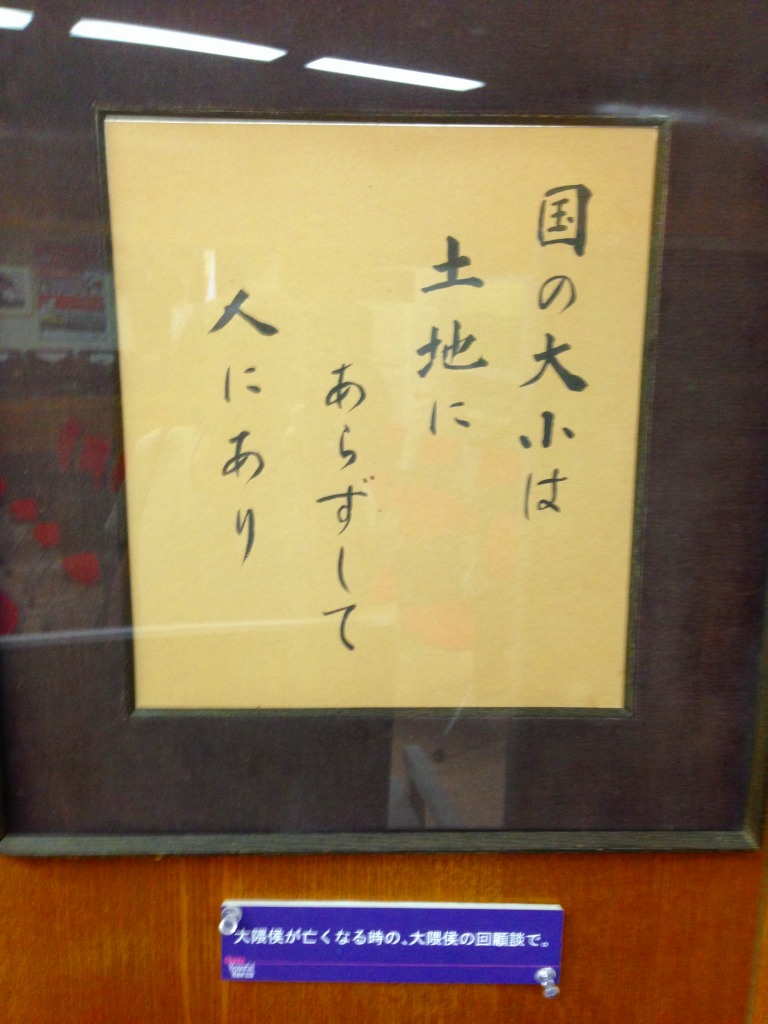 国の大小は
土地に
あらずして
人にあり
大隈侯が亡くなる時の、大隈侯の回顧談で。